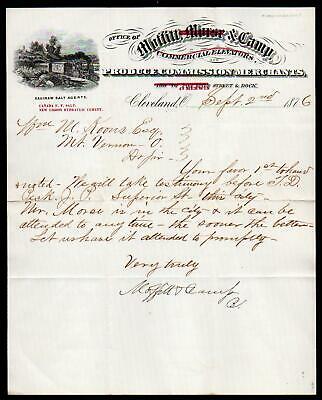 OFFICE OF
Moffett, Morse & Camp,
COMMERCIAL ELEVATORS,
PRODUCE COMMISSION MERCHANTS,
STREET & DOCK.
SAGINAW SALT AGENTS.
CANADA N. Y. SALT.
NEW LISBON HYDRAULIC CEMENT.
Cleveland, O. Sept. 2nd 1876
Wm. M. Koons Esq.
Mt. Vernon O.
Dr Sir
Your favor 1st to hand
& noted - We will take testimony before J. D.
J. P. Superior St. this city
Mr. Morse is in the city & it can be
attended to any time - the sooner the better
Let us have it attended to promptly
Very truly
Moffett & Camp